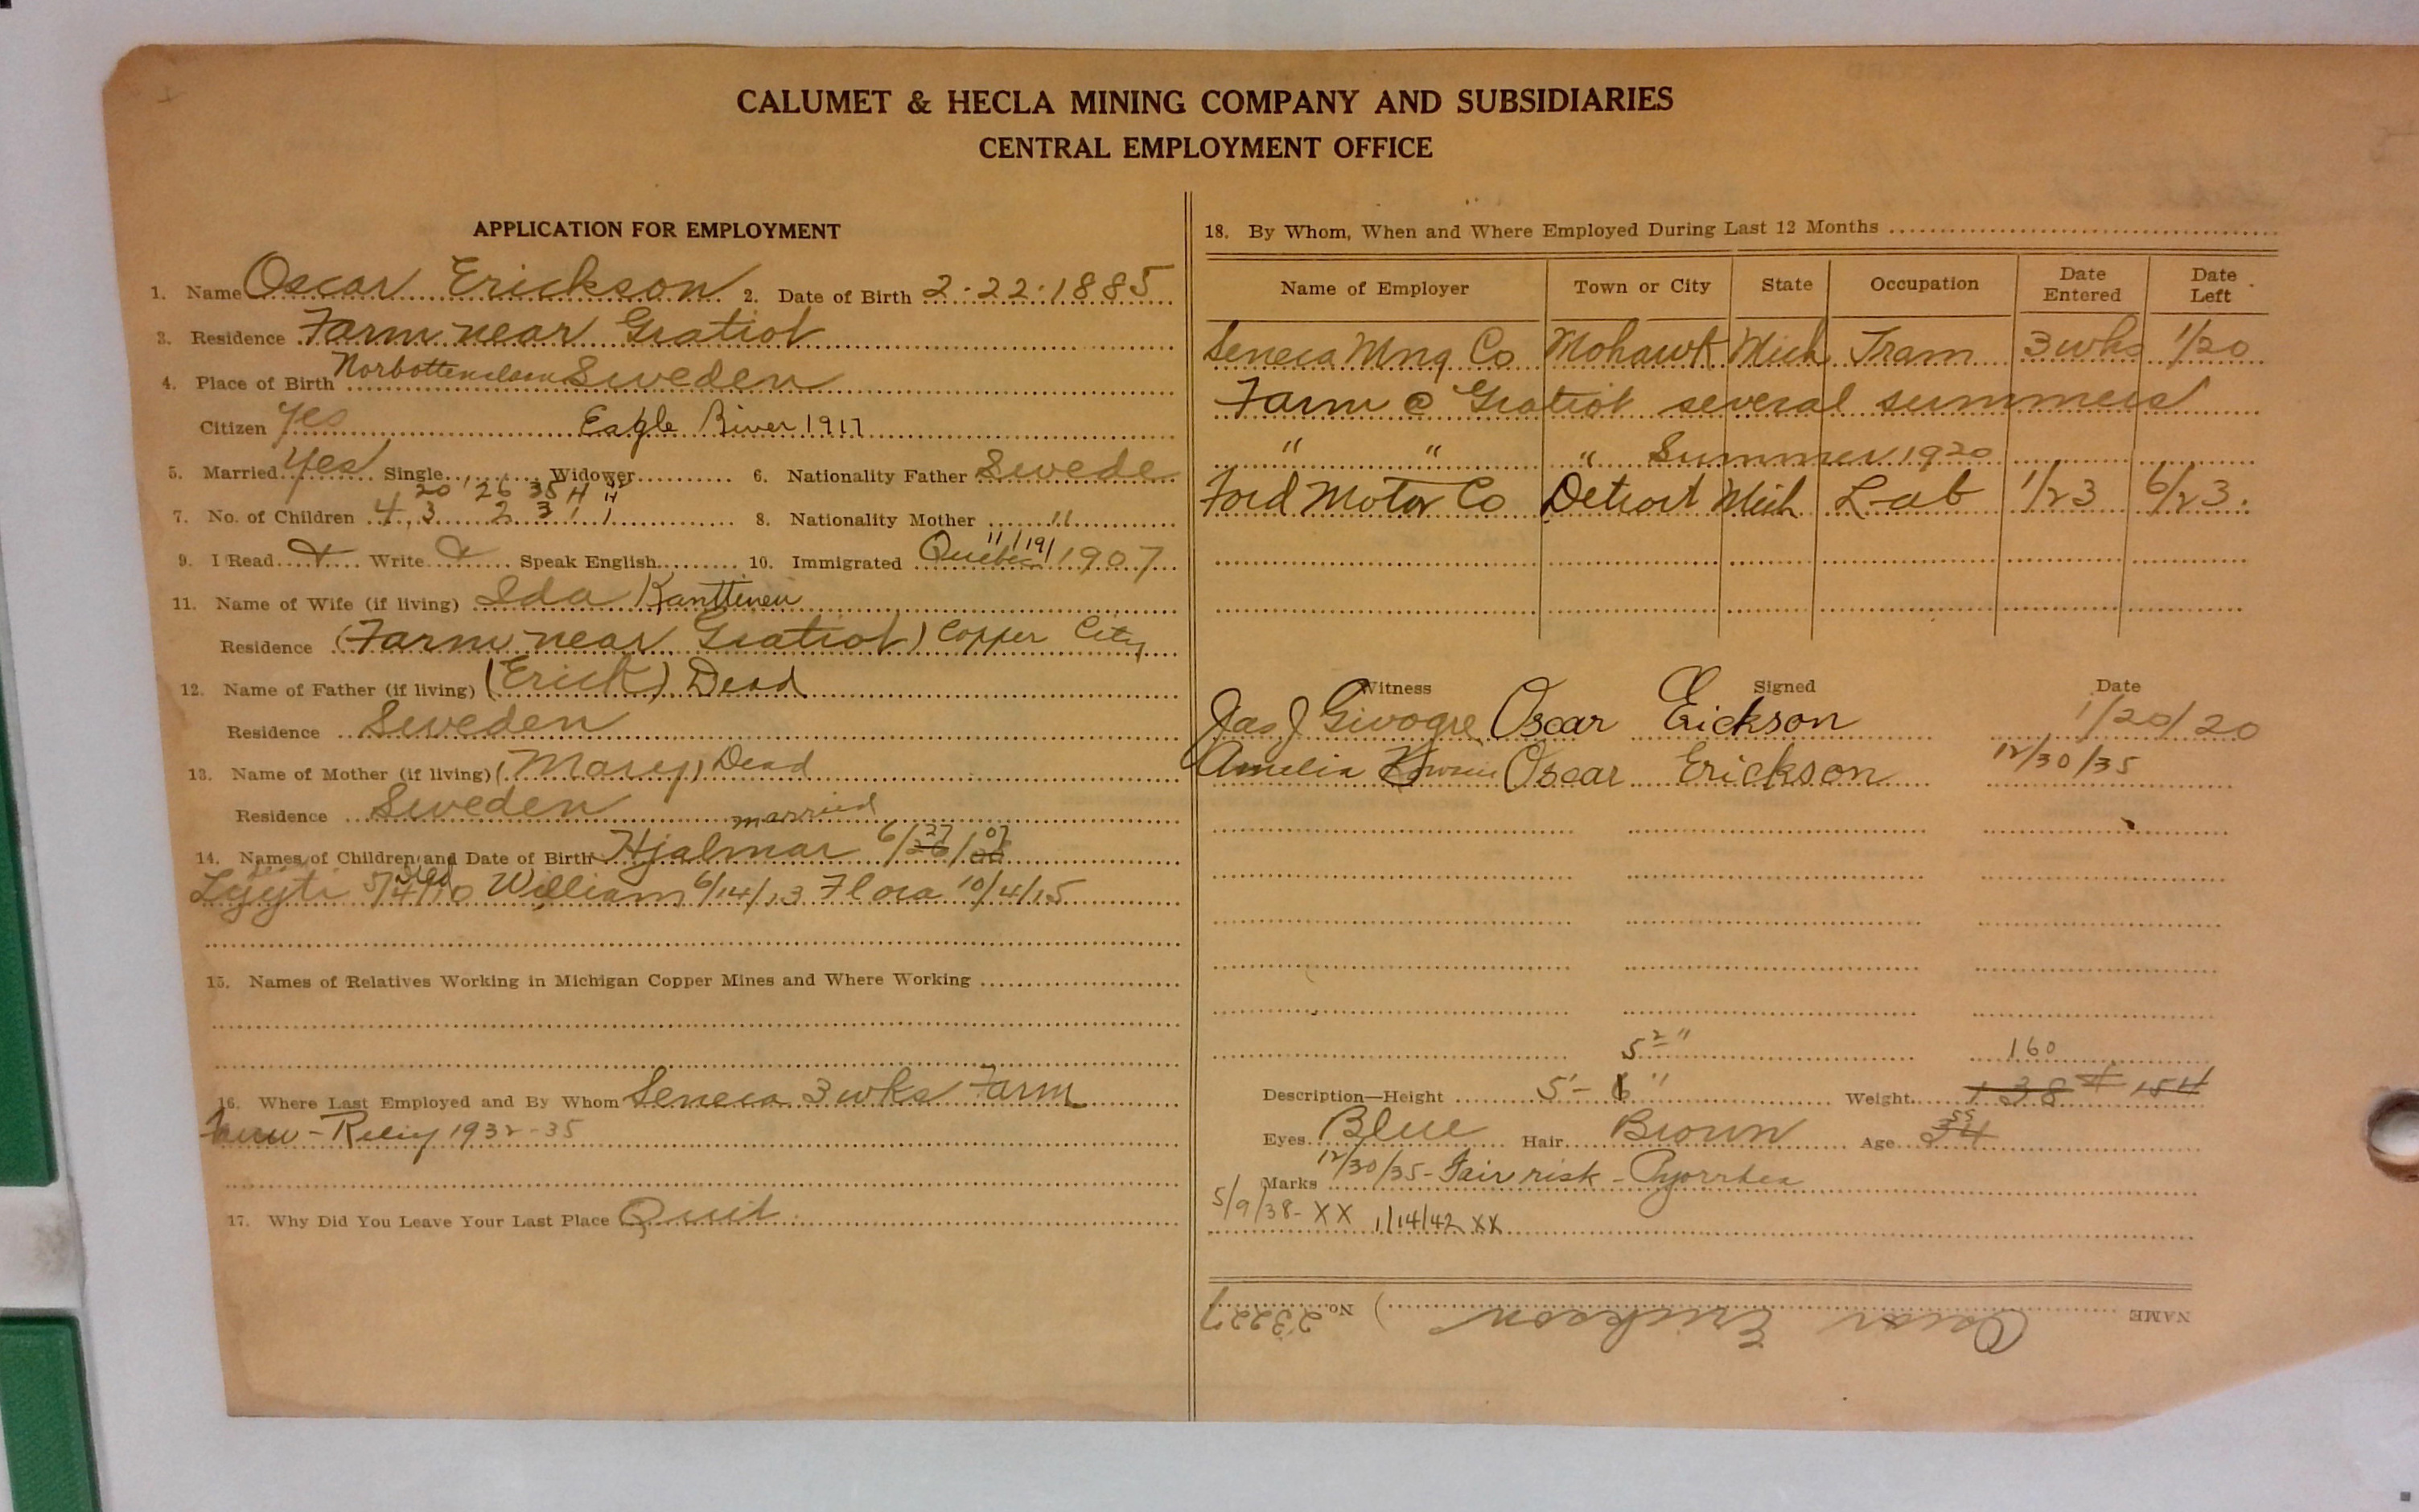 CALUMET & HECLA MINING COMPANY AND SUBSIDIARIES
CENTRAL EMPLOYMENT OFFICE
APPLICATION FOR EMPLOYMENT
1. Name Oscar Erickson 2. Date of Birth 2-22-1885
3. Residence Farm near Gratiot
4. Place of Birth Sweden
Citizen Yes Eagle River 1917
5. Married Yes Single Widower 6. Nationality Father Swede
20 '26 35
7. No. of Children 4, 3 2 3 1 1 8. Nationality Mother "
9. I Read Write Speak English 10. Immigrated Quebec 11/19/1907
11. Name of Wife (if living) Ida Kanttinen
Residence (Farm near Gratiot) Copper City
12. Name of Father (if living) (Erick) Dead
Residence Sweden
13. Name of Mother (if living) (Mary) Dead
Residence Sweden
married
14. Names of Children and Date of Birth Hjalmar 6/27/07
Died
5/4/10 William 6/14/13 Flora 10/4/15
15. Names of Relatives Working in Michigan Copper Mines and Where Working
16. Where Last Employed and By Whom Seneca 3 wks Farm
1932-35
17. Why Did You Leave Your Last Place Quit
18. By Whom, When and Where Employed During Last 12 Months
Name of Employer Town or City State Occupation Date Entered Date Left
Seneca Mng Co Mohawk Mich Tram 3 wks 1/20
Farm @ Gratiot several summers
" " " Summer 1920
Ford Motor Co Detroit Mich Lab 1/23 6/23.
Witness Signed Date
Jas J Givogre Oscar Erickson 1/20/20
Amelia Oscar Erickson 12/30/35
5 2" 160
Description—Height 5'-6" Weight 138 # 154
55
Eyes Blue Hair Brown Age 34
Marks 12/30/35- Fair risk - Pyorrhea
5/9/38- XX 1/14/42 XX
NAME Oscar Erickson No. 23227